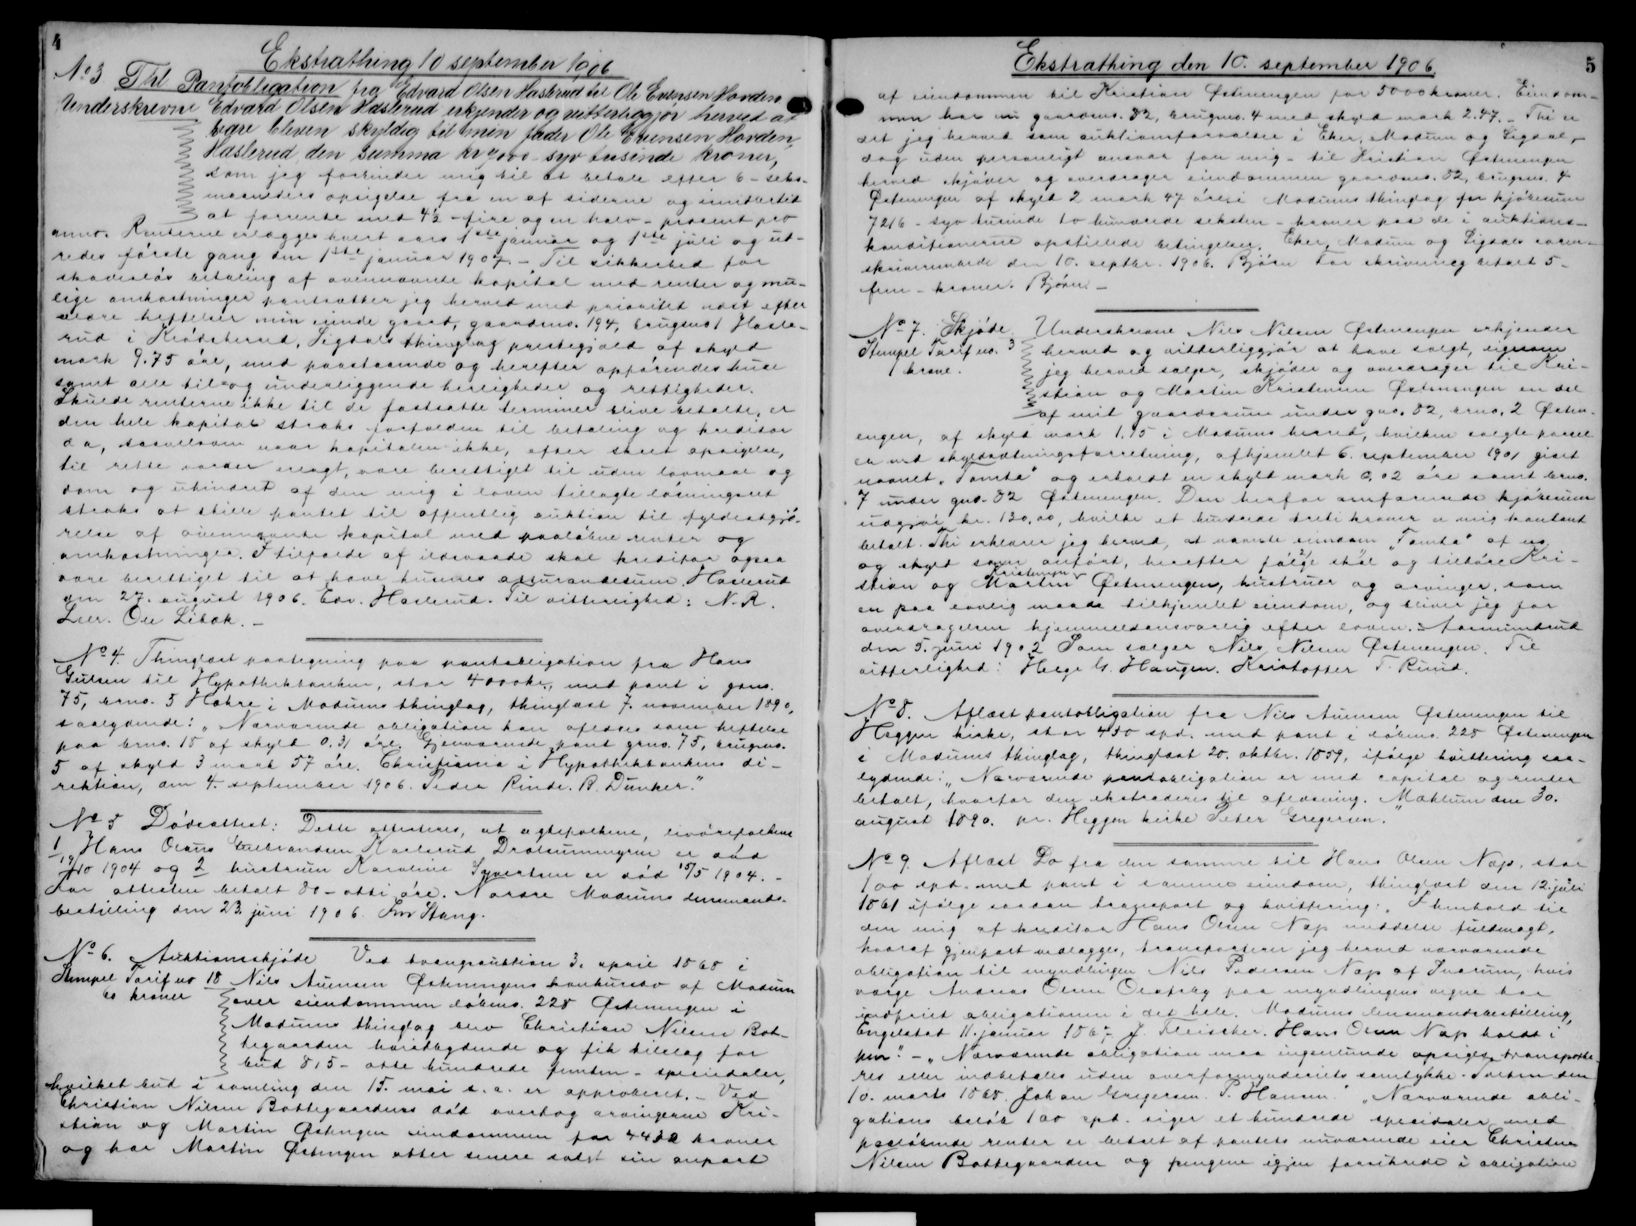 4
Ekstrathing 10 september 1906
No 3 Thl Pantobligation fra Edvard Olsen Haslerud til Ole Evensen Hovden
Underskrevne Edvard Olsen Haslerud erkjender og vitterliggjør herved at
være bleven skyldig til min fader Ole Evensen Hovden
Haslerud den summa kr 7000 - syv tusinde kroner,
som jeg forbinder mig til at betale efter 6 - seks-
maaneders opsigelse fra en af siderne og imidlertid
at forrente med 4½ - fire og en halv - procent pro
anno. Renterne erlægges hvert aars 1ste januar og 1ste juli og ud-
redes første gang den 1ste januar 1907. - Til sikkerhed for
skadesløs betaling af ovennævnte kapital med renter og mu-
lige omkostninger pantsætter jeg herved med prioritet næst efter
ældre heftelser min eiende gaard, gaardsno. 194, brugsno 1 Hasle-
rud i Krødsherred, Sigdals thinglag prestegjæld af skyld
mark 9.75 øre, med paastaaende og herefter opførendes huse
samt alle til og underliggende herligheder og rettigheder.
Skulde renterne ikke til de fastsatte terminer blive betalte, er
den hele kapital straks forfalden til betaling og kreditor
da, saavelsom naar kapitalen ikke, efter skeet opsigelse,
til rette vorder erlagt, være berettiget til uden lovmaal og
dom og uhindret af den mig i loven tillagte løsningsret
straks at stille pantet til offentlig auktion til fyldestgjø-
relse af ovennævnte kapital med paaløbne renter og
omkostninger. I tilfælde af ildsvaade skal kreditor ogsaa
være berettiget til at hæve husenes assurancesum. Haslerud
den 27. august 1906. Edv. Haslerud. Til vitterlighed: N. R.
Lier. Ole Libak. -
No 4. Thinglæst paategning paa pantobligation fra Hans
Gulsen til Hypothekbanken, stor 4000 kr., med pant i grno.
75, brno. 5 Høkre i Modums thinglag, thinglæst 7. november 1890,
saalydende: "Nærværende obligation kan aflæses som heftelse
paa brno. 18 af skyld 0.31 øre. Gjenværende pant grno. 75, brugsno.
5 af skyld 3 mark 57 øre. Christiania i Hypothekbankens di-
rektion, den 4. september 1906. Peder Rinde. B. Dunker."
No 5 Dødsattest: Dette attesteres, at ægtefolkene, livørefolkene
1 Hans Olaus Gulbrandsen Karlsrud Drolsummyren er død
19/10 1904 og 2 hustruen Karoline Syvertsen er død 15/5 1904. -
For attesten betalt 80 - otti øre. Nordre Modums lensmands-
bestilling den 23. juni 1906. Fr Stang.
No 6. Auktionsskjøde Ved tvangsauktion 3. april 1868 i
Stempel Tarif no 18 Nils Aumsen Østenengens konkursbo af Modum
20 kroner over eiendommen løbeno. 228 Østenengen i
Modums thinglag blev Christian Nilsen Bot-
tegaarden høistbydende og fik tilslag for
bud 815 - otte hundrede femten - speciedaler,
hvilket bud i samling den 15. mai s. a. er approberet. - Ved
Christian Nilsen Bottegaardens død overtog arvingerne Kri-
stian og Martin Østengen eiendommen for 4432 kroner
og har Martin Østengen atter senere solgt sin anpart
5
Ekstrathing den 10. september 1906.
af eiendommen til Kristian Østenengen for 5000 kroner. Eiendom-
men har nu gaardsno. 82, brugsno. 4 med skyld mark 2.47. - Thi er
det jeg herved som auktionsforvalter i Eker, Modum og Sigdal,
dog uden personligt ansvar for mig - til Kristian Østenengen
herved skjøder og overdrager eiendommen gaardsno. 82, brugsno. 4
Østenengen af skyld 2 mark 47 øre i Modums thinglag for kjøbesum
7216 - syv tusinde to hundrede seksten - kroner paa de i auktions-
konditionerne opstillede betingelser. Eker, Modum og Sigdals soren-
skriverembede den 10. septbr. 1906. Bjørn For skrivning betalt 5 -
fem - kroner. Bjørn. -
No 7. Skjøde Underskrevne Nils Nilsen Østenengen erkjender
Stempel Tarif no. 3 herved og vitterliggjør at have solgt, ligesom
1 krone. jeg herved sælger, skjøder og overdrager til Kri-
stian og Martin Kristensen Østenengen en del
af mit gaardsrum under gno. 82, brno. 2 Østen-
engen, af skyld mark 1.95 i Modums herred, hvilken solgte parsel
er ved skyldsætningsforretning, afhjemlet 6. september 1901 givet
navnet "Tomta" og erholdt en skyld mark 0,02 øre samt brno.
7 under gno. 82 Østenengen. Den herfor omforenede kjøbesum
udgjør kr. 130,00, hvilke et hundrede treti kroner er mig kontant
betalt. Thi erklærer jeg herved, at nævnte eiendom "Tomta" af no
og skyld som anført, herefter følge skal og tilhøre Kri-
stian og Martin Kristensen Østenengen, hustruer og arvinger, som
en paa lovlig maade tilhjemlet eiendom, og bliver jeg for
overdragelsen hjemmelsansvarlig efter loven. Aamundrud
den 5. juni 1902 Som sælger Nils Nilsen Østenengen. Til
vitterlighed: Helge G. Haugen. Kristoffer T. Rund.
No 8. Aflæst pantobligation fra Nils Aumsen Østenengen til
Heggen kirke, stor 450 spd. med pant i løbeno. 228 Østenengen
i Modums thinglag, thinglæst 20. oktbr. 1859, ifølge kvittering saa-
lydende: "Nærværende pantobligation er med capital og renter
betalt, hvorfor den ekstraderes til aflæsning. Mæhlum den 30.
august 1890. pr. Heggen kirke Peter Gregersen."
No 9 Aflæst Do fra den samme til Hans Olsen Nap, stor
100 spd. med pant i samme eiendom, thinglæst den 12. juli
1861 ifølge saadan transport og kvittering: "I henhold til
den mig af kreditor Hans Olsen Nap meddelte fuldmagt,
hvoraf gjenpart vedlægges, transporterer jeg herved nærværende
obligation til myndlingen Nils Pedersen Nap af Snarum, hvis
værge Andreas Olsen Oløfsby paa myndlingens vegne har
indfriet obligationen i det hele. Modums lensmandsbestilling,
Engelstad 11. januar 1867 J. Fleischer. Hans Olsen Nap holdt i
pen". - "Nærværende obligation maa ingenlunde opsiges, transporte-
res eller indbetales uden overformynderiets samtykke. Toltern den
10. marts 1868. Johan Gregersen. P. Hansen." "Nærværende obli-
gations beløb 100 spd. siger et hundrede speciedaler med
paaløbende renter er betalt af pantets nuværende eier Christen
Nilsen Bottegaarden og pengene igjen forsikrede i obligation